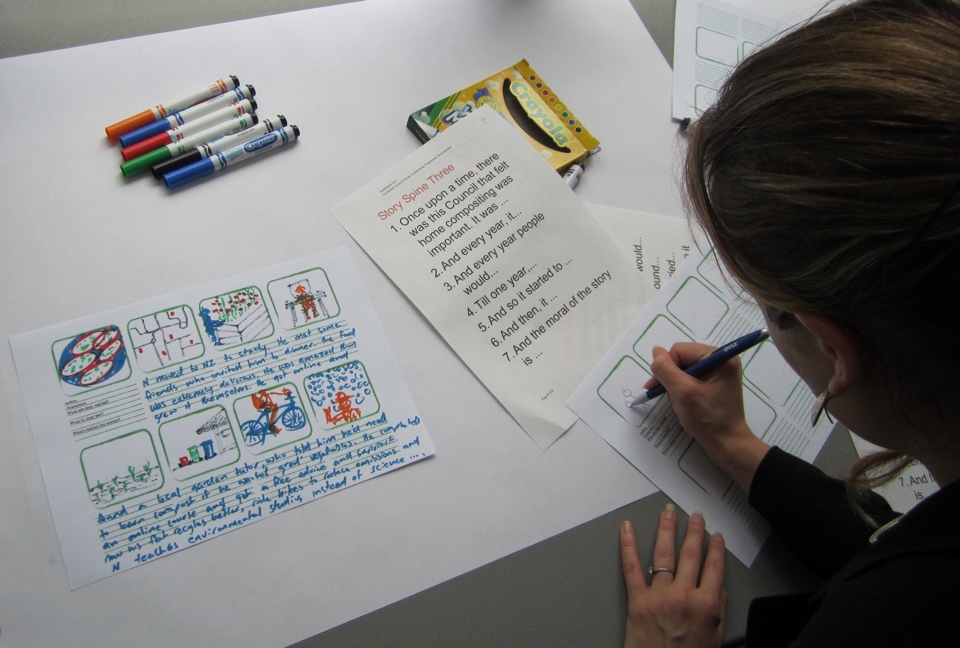 Crayola
Crayola
Story Spine Three
1. Once upon a time, there
was this Council that felt
home compositing was
important. It was ...
2. And every year, it...
3. And every year people
would...
4. Till one year,...
5. And so it started to ...
6. And then, it ...
7. And the moral of the story
is ...
would...
ound...
ried...
7. And t
is
N moved to NZ to study. He met some
friends who invited him to dinner. The food
was extremely delicious. He was amazed they
grew it themselves. He got online and
a local garden tutor, who told him he'd need
to learn compost if he wanted great vegetables. He completed
an online course and got a free advice and
now his flat recycles better, ride bikes to reduce emissions and
N teaches environmental studies instead of science ....